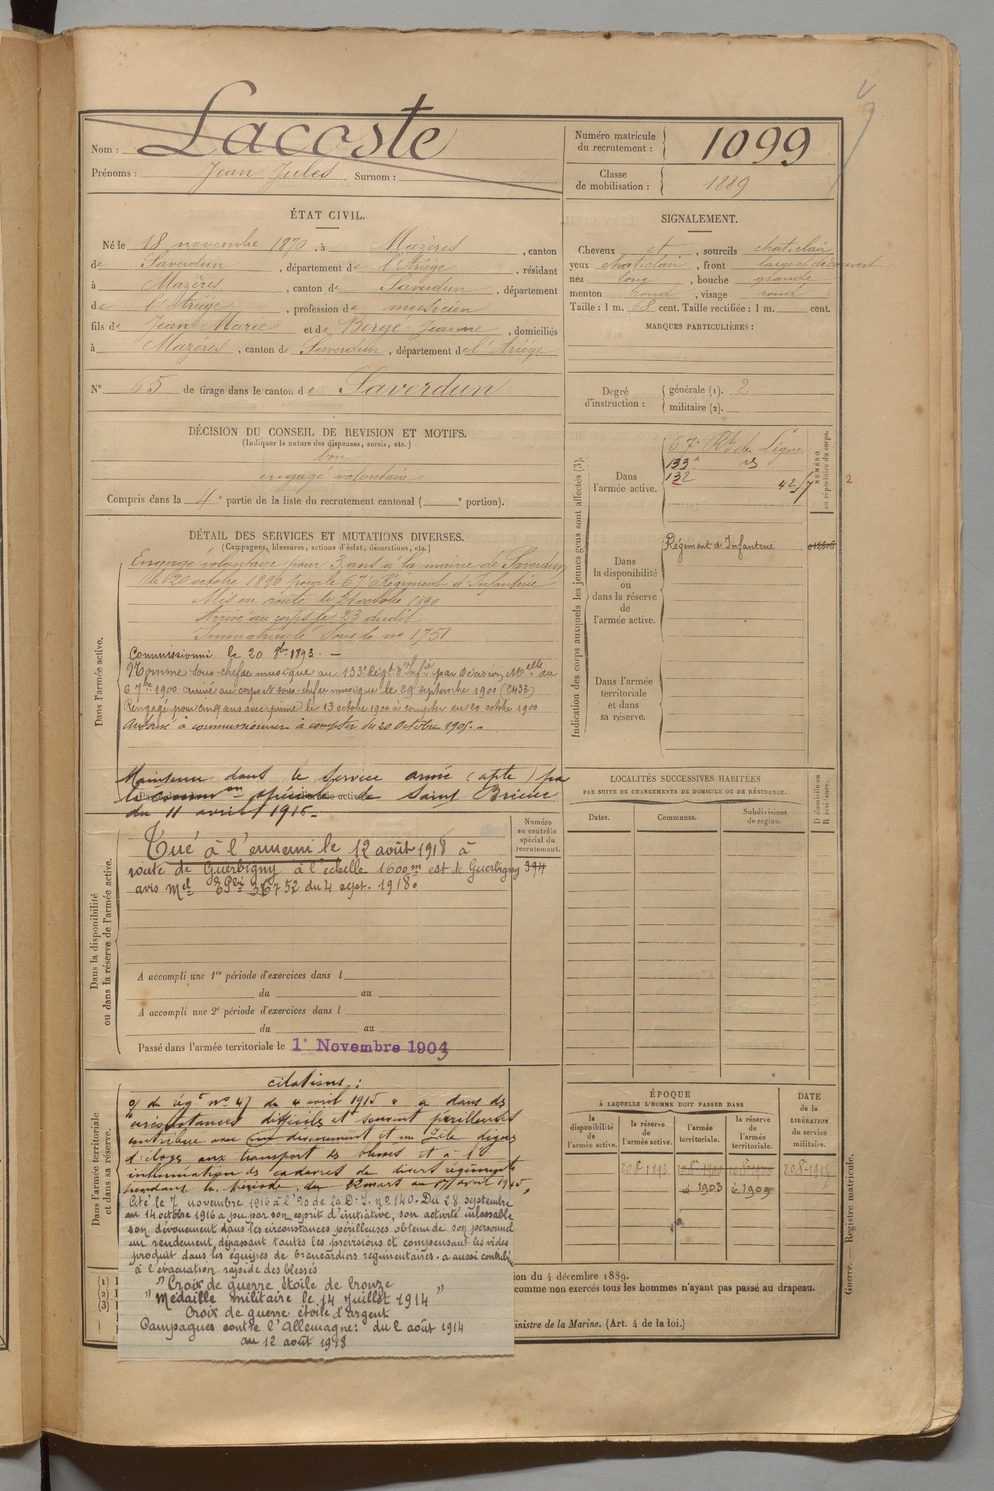 Nom : Lacoste
Prénoms : Jean Jules Surnom :
Numéro matricule du recrutement : 1099
Classe de mobilisation : 1889
ÉTAT CIVIL.
Né le 18 novembre 1870, à Mazères, canton
de Saverdun, département de l'Ariége, résidant
à Mazères, canton de Saverdun, département
de l'Ariége, profession de musicien
fils de Jean Marie et de Berge Jeanne, domiciliés
à Mazères, canton de Saverdun, département de l'Ariége
N° 65 de tirage dans le canton de Saverdun
DÉCISION DU CONSEIL DE REVISION ET MOTIFS.
(Indiquer la nature des dispenses, sursis, etc.)
bon
engagé volontaire
Compris dans la 4e partie de la liste du recrutement cantonal ( e portion).
SIGNALEMENT.
Cheveux et, sourcils chat. clair
yeux chat. clair, front large et découvert
nez long, bouche grande
menton rond, visage rond
Taille : 1 m. 68 cent. Taille rectifiée : 1 m. cent.
MARQUES PARTICULIÈRES :
Degré d'instruction : générale (1). 2
militaire (2).
DÉTAIL DES SERVICES ET MUTATIONS DIVERSES.
(Campagnes, blessures, actions d'éclat, décorations, etc.)
Dans l'armée active.
Engagé volontaire pour 3 ans à la mairie de Saverdun
le 20 octobre 1890 pour le 67e Régiment d'Infanterie
Mis en route le 21 octobre 1890
Arrivé au corps le 23 dudit
Immatriculé sous le no 1751
Commissionné le 20 8bre 1893. -
Nommé sous-chef de musique au 133e Régt d'Infie par Décision Melle du
6 7bre 1900 arrivé au corps et sous-chef de musique le 29 septembre 1900 (2433)
Rengagé pour cinq ans avec prime le 13 octobre 1900 à compter du 20 octobre 1900
Autorisé à commissionner à compter du 20 Octobre 1905. -
Maintenu dans le service armé (apte) par
la Common spéciale de Saint Brieuc
du 11 avril 1915 -
Dans la disponibilité ou dans la réserve de l'armée active.
Tué à l'ennemi le 12 août 1918 à
route de Guerbigny à l'echelle 1600m est de Guerbigny
avis Mel 52 du 4 sept. 1918.
Numéro au contrôle spécial du recrutement.
394
A accompli une 1re période d'exercices dans l
du au
A accompli une 2e période d'exercices dans l
du au
Passé dans l'armée territoriale le 1er Novembre 1903
Dans l'armée territoriale et dans sa réserve.
citations :
o/ du régt no 47 du 4 avril 1915 a dans des
circonstances difficiles et souvent périlleuses
contribué avec discernement et un zèle dignes
d'éloges aux transport des blessés et à l'
inhumation des cadavres de divers régiments
pendant la période du 22 mars au avril 1915,
Cité le 7 novembre 1916 à l'o. de la D. I. no 140. Du 28 septembre
au 14 octobre 1916 a pu par son esprit d'initiative, son activité inlassable
son dévouement dans les circonstances périlleuses obtenu de son personnel
un rendement, dépassant toutes les prévisions et compensant les vides
produit dans les équipes de brancardiers régimentaires. a aussi contribué
à l'évacuation rapide des blessés
" Croix de guerre étoile de bronze
" Médaille militaire le 14 Juillet 1914 "
Croix de guerre étoile d'argent
Campagnes contre l'Allemagne : du 2 août 1914
au 12 août 1918
Indication des corps auxquels les jeunes gens sont affectés (3).
Dans l'armée active.
67e Rt de Ligne
133e
132
NUMÉRO au répertoire du corps.
2
Dans la disponibilité ou dans la réserve de l'armée active.
Régiment d'Infanterie
Dans l'armée territoriale et dans sa réserve.
LOCALITÉS SUCCESSIVES HABITÉES
PAR SUITE DE CHANGEMENTS DE DOMICILE OU DE RÉSIDENCE.
Dates. Communes. Subdivisions de région. D domicile ou R résidence.
ÉPOQUE
À LAQUELLE L'HOMME DOIT PASSER DANS
la disponibilité de l'armée active. la réserve de l'armée active. l'armée territoriale. la réserve de l'armée territoriale.
DATE de la LIBÉRATION du service militaire.
1903 1909
(1)
(2)
(3)
ion du 4 décembre 1889.
comme non exercés tous les hommes n'ayant pas passé au drapeau.
inistre de la Marine. (Art. 4 de la loi.)
Guerre. — Registre matricule.